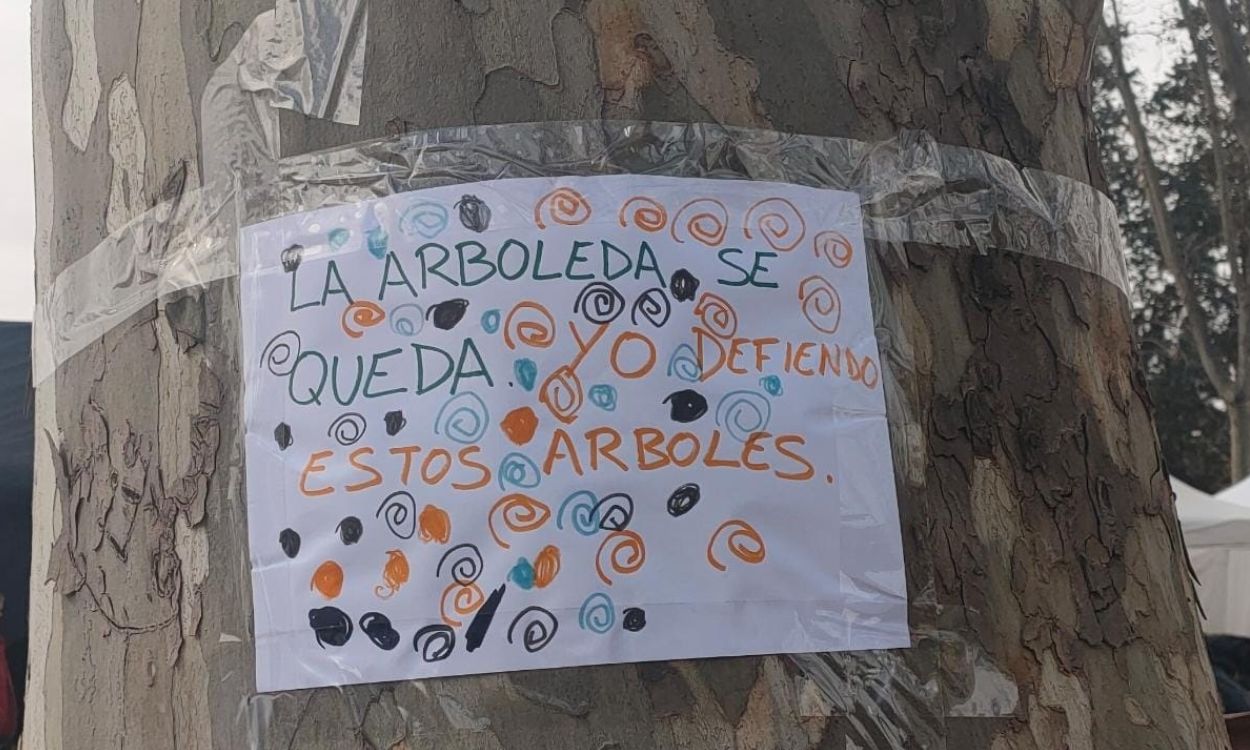 LA ARBOLEDA SE
QUEDA. YO DEFIENDO
ESTOS ARBOLES.